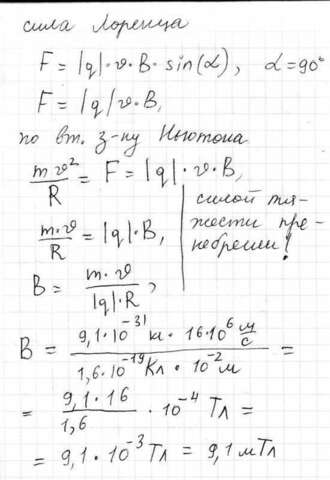 сила Лоренца
F = |q|·v·B·sin(α), α=90°
F = |q|v·B,
по вт. з-ну Ньютона
mv²/R = F = |q|·v·B,
m·v/R = |q|·B,
B = m·v/|q|·R,
силой тя-
жести пре-
небрегли!
B = 9,1·10⁻³¹ кг·16·10⁶ м/с / 1,6·10⁻¹⁹ Кл·10⁻² м =
= 9,1·16/1,6 · 10⁻⁴ Тл =
= 9,1·10⁻³ Тл = 9,1 мТл